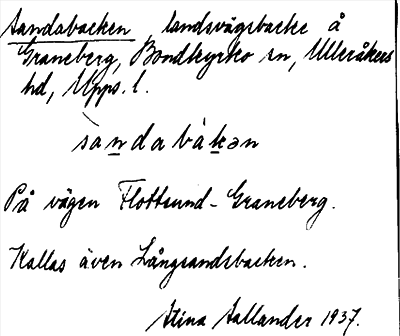 Sandabacken, landsvägsbacke å
Graneberg, Bondkyrko sn, Ulleråkers
hd, Upps. l.
sandabàkən
På vägen Flottsund - Graneberg.
Kallas även Långsandsbacken.
Stina Sallander 1937.